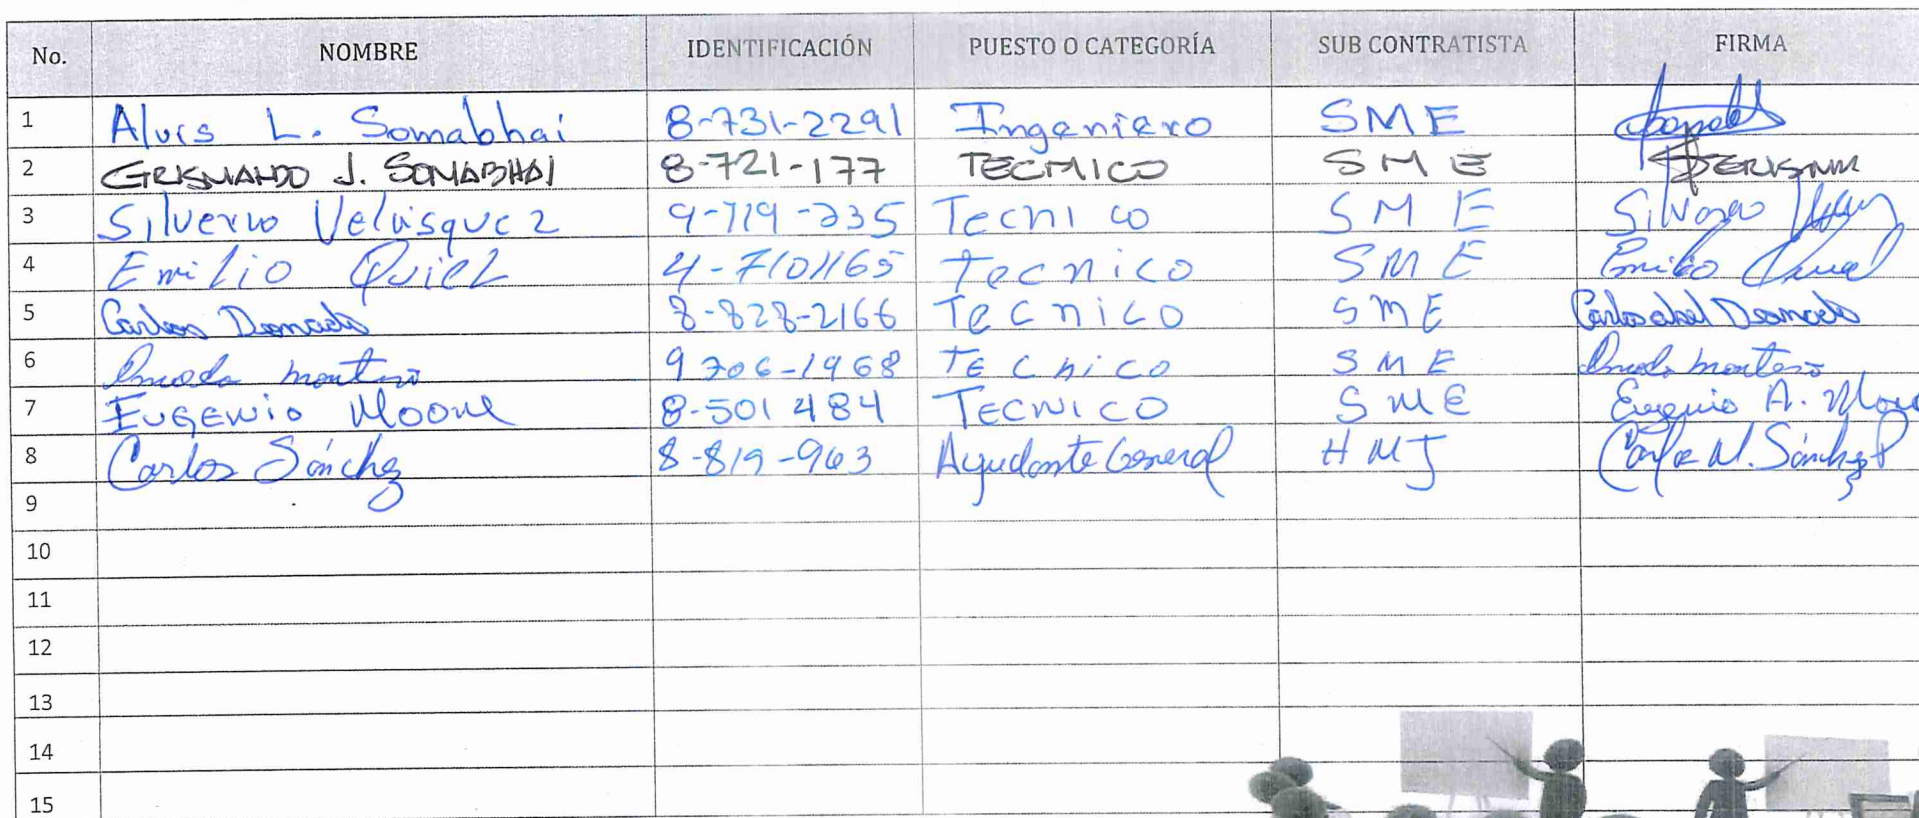 No. NOMBRE IDENTIFICACIÓN PUESTO O CATEGORÍA SUB CONTRATISTA FIRMA
1 Alvis L. Somabhai 8-731-2291 Ingeniero SME
2 GRISMANDO J. SOMABHAI 8-721-177 TECNICO SME
3 Silverio Velasquez 9-719-235 Tecnico SME Silverio
4 Emilio Quiel 4-710-1165 Tecnico SME Emilio Quiel
5 Carlos 8-828-2166 Tecnico SME Carlos
6 montero 9 706-1968 TECnico SME montero
7 EUGENIO Moore 8-501 484 TECNICO SME Eugenio A.
8 Carlos Sánchez 8-819-963 Ayudante General HMJ Carlos Sánchez
9
10
11
12
13
14
15